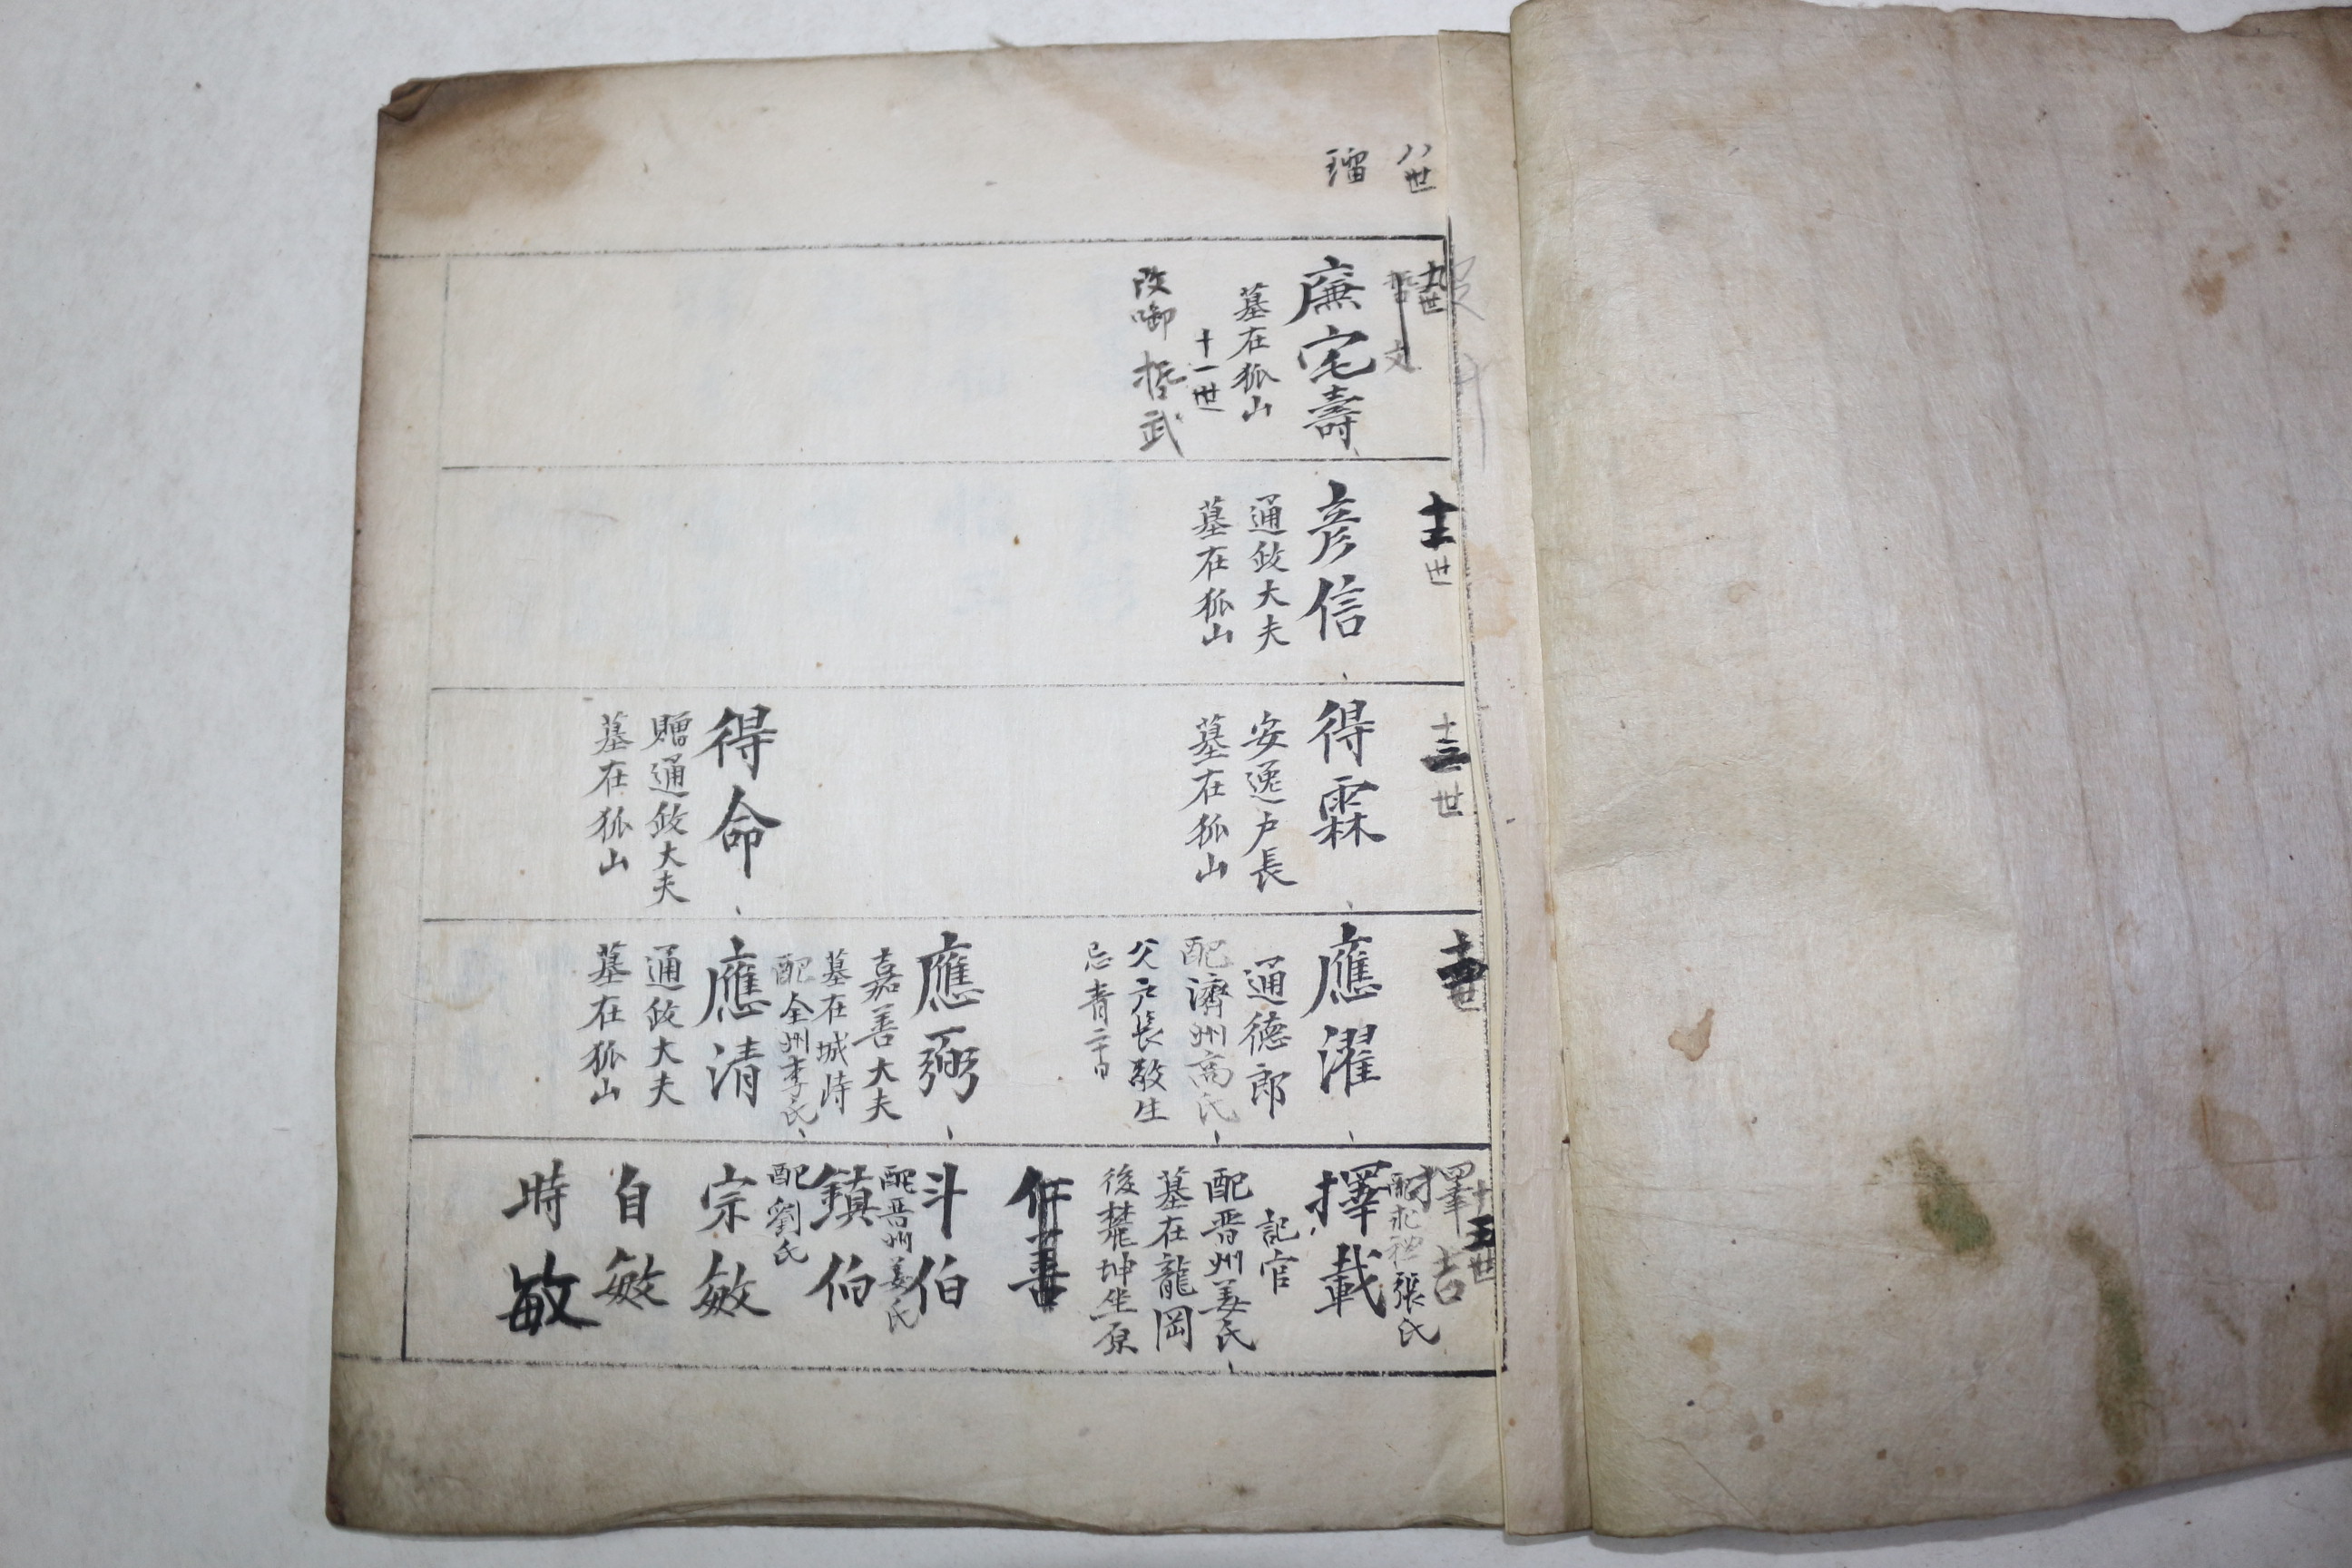 八世
瑠
九世
哲文
廉宅壽
墓在狐山
十一世
改啣
哲武
十二世
彦信
通政大夫
墓在狐山
十三世
得霖
安逸戶長
墓在狐山
得命
贈通政大夫
墓在狐山
十四世
應濯
通德郎
配濟州高氏
父戶長敬生
忌青二十日
應弼
嘉善大夫
墓在城峙
配全州李氏
應清
通政大夫
墓在狐山
十五世
擇吉
張氏
擇載
記官
配晋州姜氏
墓在龍岡
後麓坤坐原
斗伯
配晋州姜氏
鎮伯
配劉氏
宗敏
自敏
時敏